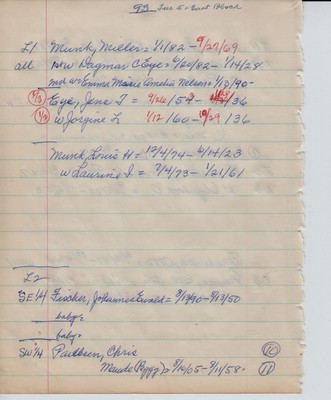 93
L1 Munk, Miller = 1/1/82 - 9/27/69
all w Dagmar C Eye = 6/20/82 - 1/14/28
w Emma Marie Amelia Nelson = 1/13/90 -
Eye, Jens T = 2/26/53 - /36
w Jorgine L 1/12/60 - 10/29/36
Munk, Louis H = 12/4/74 - 6/14/23
w Laurine I = 7/4/73 - 1/21/61
L2
SE 1/4 Fischer, Johannes Ewald = 3/13/90 - 8/13/50
baby
baby
SW 1/4 Paulsen, Chris (10)
Maude (Rygg) = 8/10/05 - 9/11/58 - (11)